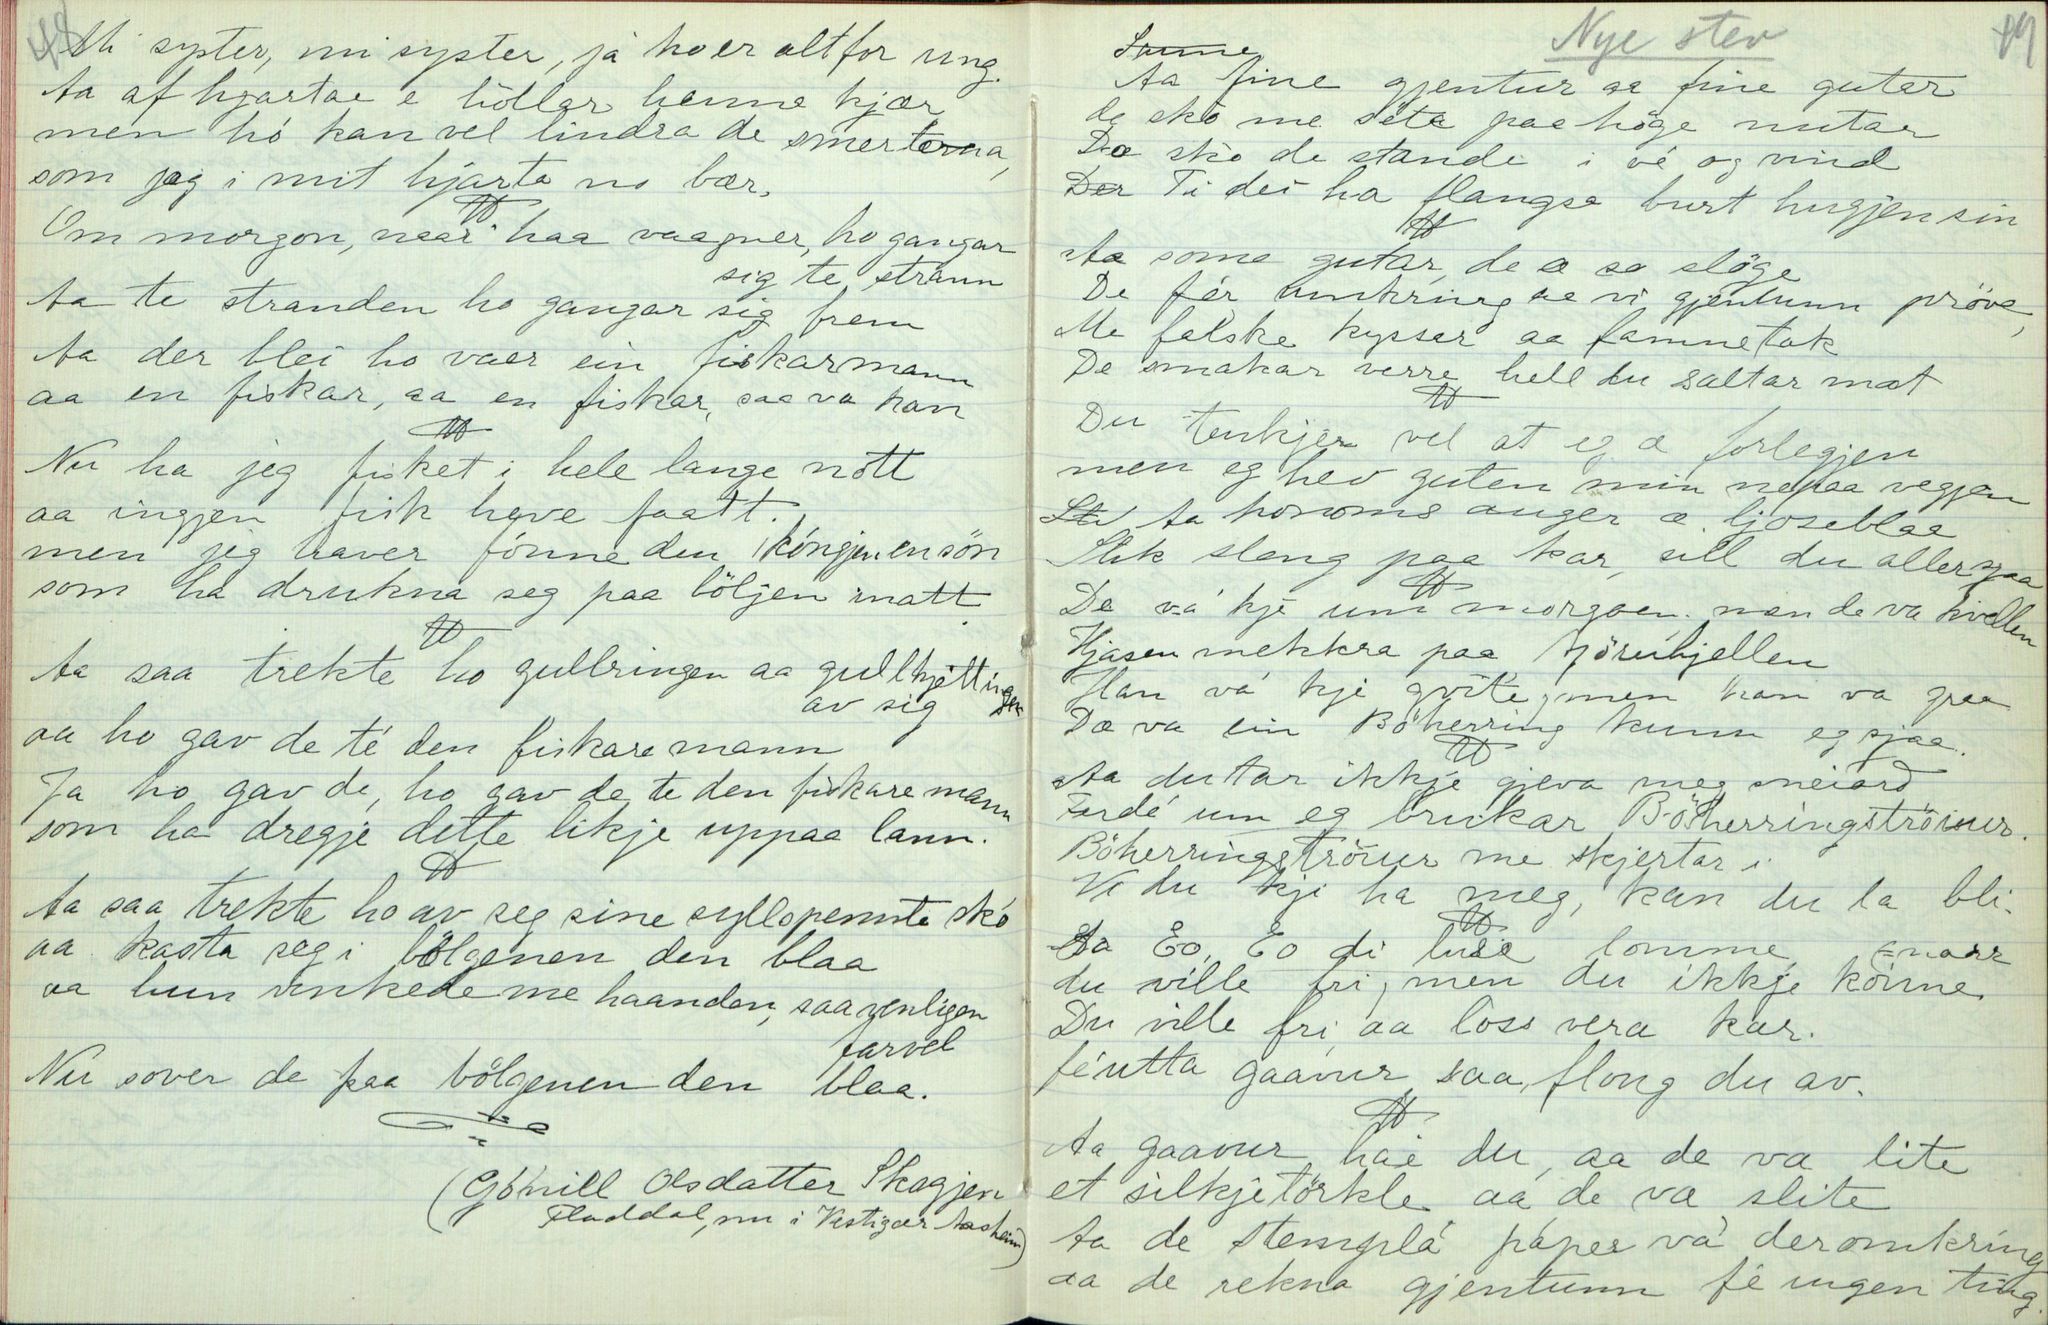 48
Mi syster, mi syster, já ho er alt for ung.
Aa af hjartae e höllar henne kjær
men hó kan vel lindra de smerterna,
som jeg i mit hjarta no bær.
Om morgon, naar haa vaagner, ho gangar
sig te straun
Aa te stranden ho gangar sig frem
Aa der blei ho vaer ein fiskarmann
aa en fiskar, aa en fiskar, saa va han
Nu ha jeg fisket i hele lange nött
aa ingjen fisk heve faatt.
men jeg haver fönne den kóngjen en sön
som ha drukna seg paa böljen natt
Aa saa trekte ho gullringen aa gullkjéttingen
av sig
aa ho gav de té den fiskare mann
Ja ho gav de, ho gav de te den fiskare mann
som ha dregje dette likje uppaa lann.
Aa saa trekte ho av seg sine syllspennte skó
aa kasta seg i bölgenen den blaa
aa hun vinkede me haanden, saa venligen
farvel
Nu sover de paa bölgenen den blaa.
(Gónill Olsdatter Skogjen
Fladdal, nu i Vestigar Aasheim)
Nye stev
49
Somme
Aa fine gjentur aa fine gutar
de skó me séta paa höge nutar
Da skó de stande i vé og vind
Der Ti dei ha flangsa burt hugjen sin
Aa some gutar, de æ so slöge
De fér umkring aa vi gjentunn pröve,
Me falske kyssar aa famnetak
De smakar verre hell du saltar mat
Du tenkjer vel at eg æ forlegjen
men eg hev guten min nepaa vegjen
Aa honoms auger æ ljoseblaa
Slik sleng paa kar, sill du aller sjaa
De vá kje um morgoen. men de va kvellen
Hjasen mekkra paa Tjörnhjellen
Han vá kje gvite, men han va graa
Da va ein Böherring kunn eg sjaa.
Aa du tar ikkje gjeva meg sneiord
Fordé um eg brukar Böherringströiur.
Böherringströiur me skjertar i
Vi du kje ha meg, kan du la bli.
Aa Eo, Eo di luse lomme, snaar
du ville fri, men du ikkje kónne.
Du ville fri, aa loss vera kar.
féutta gaavur saa flong du av.
Aa gaavur háe du, aa de va lite
et silkjetörkle aa de va slite
Aa de stemplá páper vá deromkring
aa de rekna gjentunn fé ingen ting.